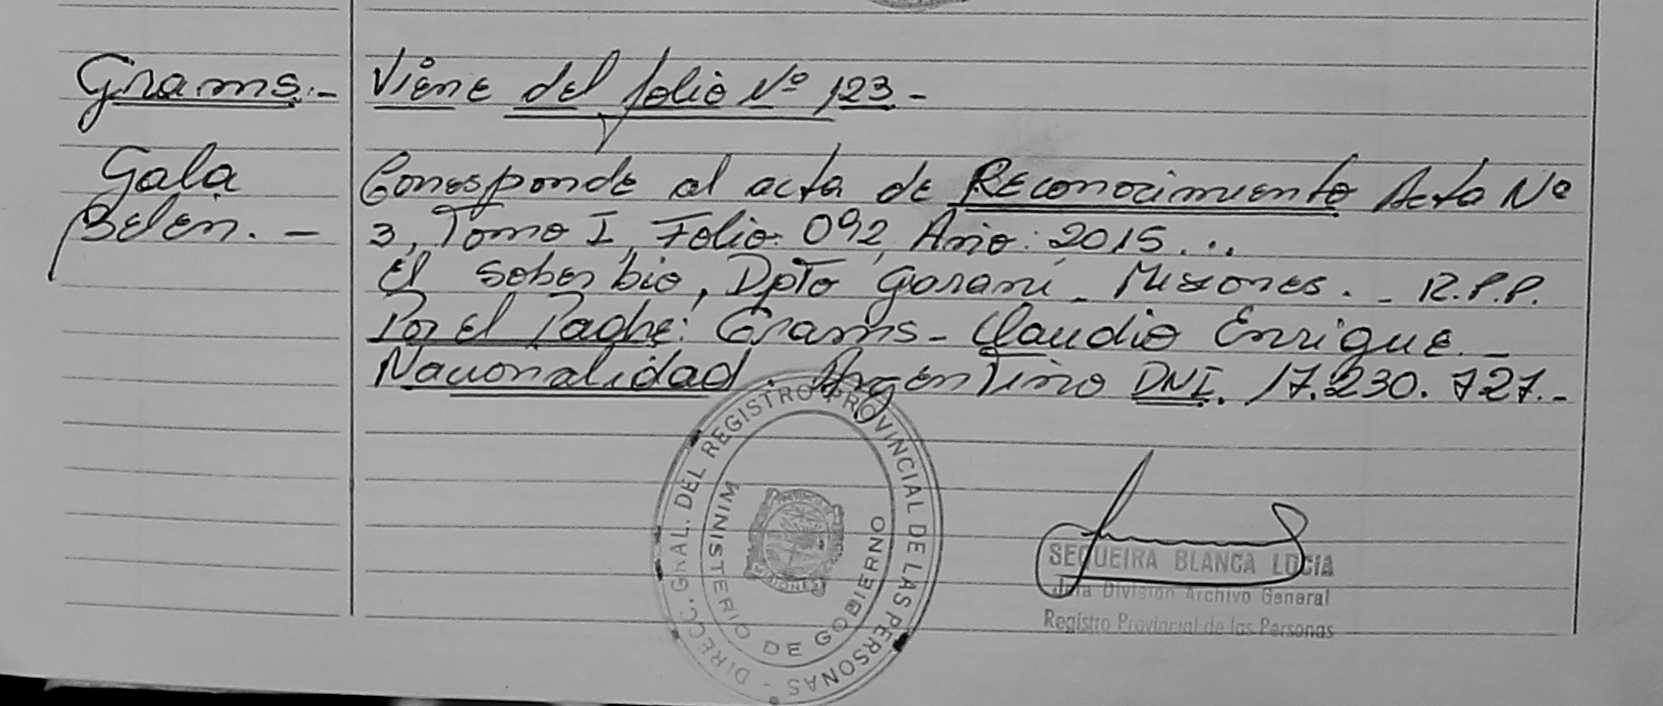 Grams.-
Gala
Belén. -
Viene del folio Nº 123 -
Corresponde al acta de Reconocimiento Acta Nº
3, Tomo I, Folio: 092, Año: 2015...
El Soberbio, Dpto Guarani - Misiones. - R.P.P.
Por el Padre: Grams - Claudio Enrique. -
Nacionalidad. Argentino DNI. 17.230.727.-
DIRECC. GRAL. DEL REGISTRO PROVINCIAL DE LAS PERSONAS -
MINISTERIO DE GOBIERNO
MISIONES
SEQUEIRA BLANCA LUCIA
Jefa División Archivo General
Registro Provincial de las Personas